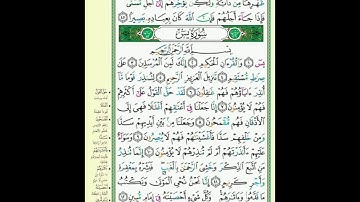 ظَهْرِهَا مِن دَآبَّةٍ وَلَٰكِن يُؤَخِّرُهُمْ إِلَىٰٓ أَجَلٍ مُّسَمًّى
فَإِذَا جَآءَ أَجَلُهُمْ فَإِنَّ ٱللَّهَ كَانَ بِعِبَادِهِۦ بَصِيرًۢا ٤٥
سُورَةُ يسٓ
بِسْمِ ٱللَّهِ ٱلرَّحْمَٰنِ ٱلرَّحِيمِ
يسٓ ١ وَٱلْقُرْءَانِ ٱلْحَكِيمِ ٢ إِنَّكَ لَمِنَ ٱلْمُرْسَلِينَ ٣ عَلَىٰ
صِرَٰطٍ مُّسْتَقِيمٍ ٤ تَنزِيلَ ٱلْعَزِيزِ ٱلرَّحِيمِ ٥ لِتُنذِرَ قَوْمًا مَّآ
أُنذِرَ ءَابَآؤُهُمْ فَهُمْ غَٰفِلُونَ ٦ لَقَدْ حَقَّ ٱلْقَوْلُ عَلَىٰٓ أَكْثَرِهِمْ
فَهُمْ لَا يُؤْمِنُونَ ٧ إِنَّا جَعَلْنَا فِىٓ أَعْنَٰقِهِمْ أَغْلَٰلًا فَهِىَ إِلَى
ٱلْأَذْقَانِ فَهُم مُّقْمَحُونَ ٨ وَجَعَلْنَا مِنۢ بَيْنِ أَيْدِيهِمْ سَدًّا
وَمِنْ خَلْفِهِمْ سَدًّا فَأَغْشَيْنَٰهُمْ فَهُمْ لَا يُبْصِرُونَ ٩ وَسَوَآءٌ
عَلَيْهِمْ ءَأَنذَرْتَهُمْ أَمْ لَمْ تُنذِرْهُمْ لَا يُؤْمِنُونَ ١٠ إِنَّمَا تُنذِرُ
مَنِ ٱتَّبَعَ ٱلذِّكْرَ وَخَشِىَ ٱلرَّحْمَٰنَ بِٱلْغَيْبِ فَبَشِّرْهُ بِمَغْفِرَةٍ
وَأَجْرٍ كَرِيمٍ ١١ إِنَّا نَحْنُ نُحْىِ ٱلْمَوْتَىٰ وَنَكْتُبُ
مَا قَدَّمُوا۟ وَءَاثَٰرَهُمْ وَكُلَّ شَىْءٍ أَحْصَيْنَٰهُ فِىٓ إِمَامٍ مُّبِينٍ ١٢